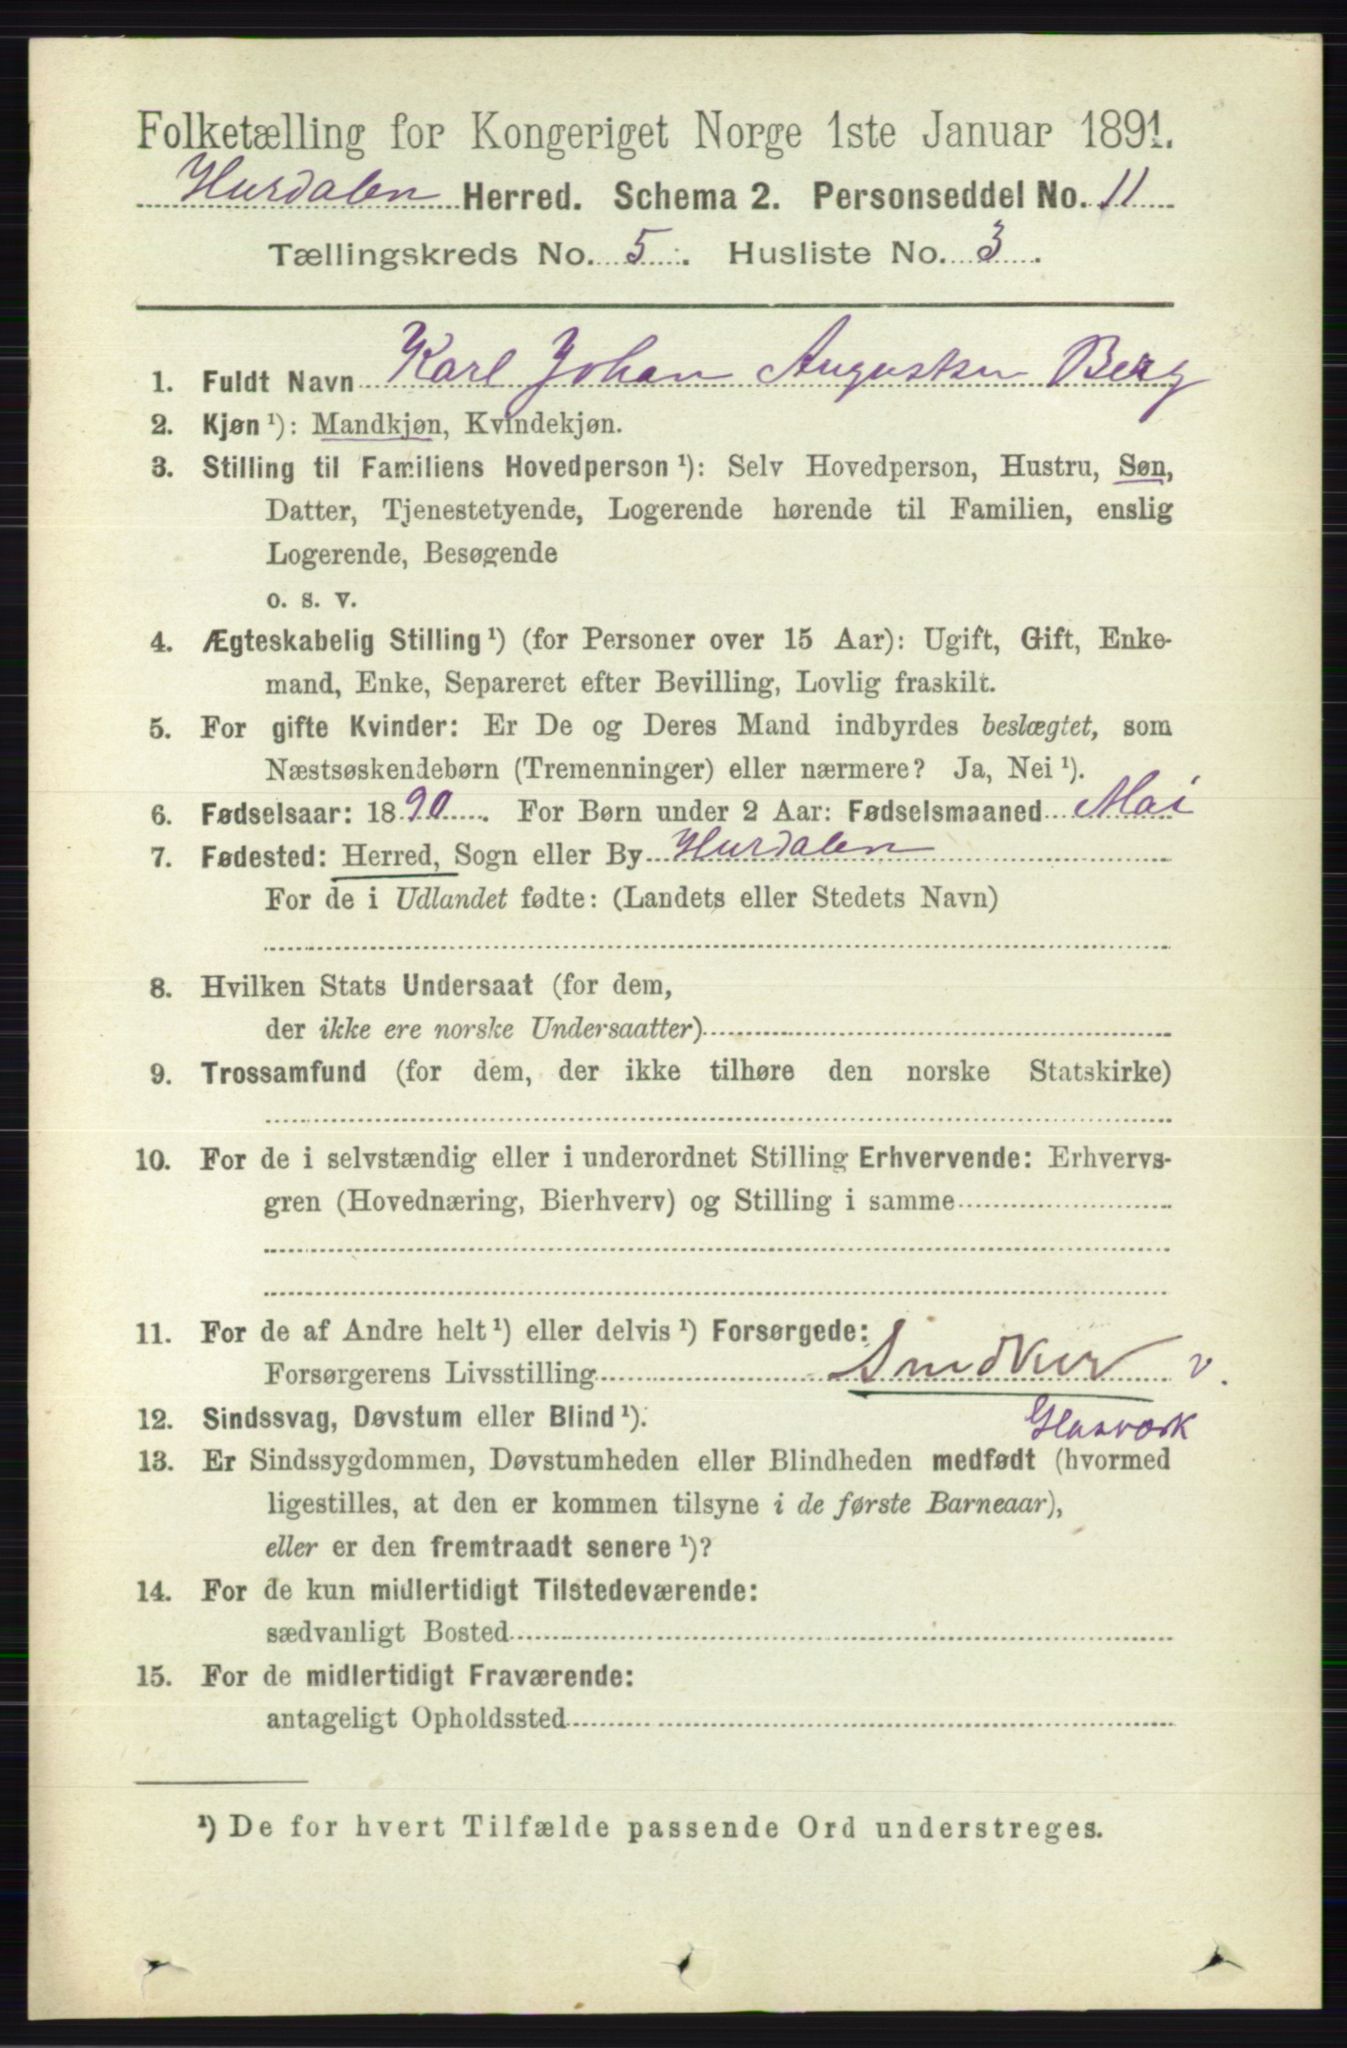 Folketælling for Kongeriget Norge 1ste Januar 1891.
Hurdalen Herred. Schema 2. Personseddel No. 11
Tællingskreds No. 5. Husliste No. 3.
1. Fuldt Navn Karl Johan August Berg
2. Kjøn ¹): Mandkjøn, Kvindekjøn.
3. Stilling til Familiens Hovedperson ¹): Selv Hovedperson, Hustru, Søn,
Datter, Tjenestetyende, Logerende hørende til Familien, enslig
Logerende, Besøgende
o. s. v.
4. Ægteskabelig Stilling ¹) (for Personer over 15 Aar): Ugift, Gift, Enke-
mand, Enke, Separeret efter Bevilling, Lovlig fraskilt.
5. For gifte Kvinder: Er De og Deres Mand indbyrdes beslægtet, som
Næstsøskendebørn (Tremenninger) eller nærmere? Ja, Nei ¹).
6. Fødselsaar: 1890. For Børn under 2 Aar: Fødselsmaaned Mai
7. Fødested: Herred, Sogn eller By Hurdalen
For de i Udlandet fødte: (Landets eller Stedets Navn)
8. Hvilken Stats Undersaat (for dem,
der ikke ere norske Undersaatter)
9. Trossamfund (for dem, der ikke tilhøre den norske Statskirke)
10. For de i selvstændig eller i underordnet Stilling Erhvervende: Erhvervs-
gren (Hovednæring, Bierhverv) og Stilling i samme
11. For de af Andre helt ¹) eller delvis ¹) Forsørgede:
Forsørgerens Livsstilling v.
Glasværk
12. Sindssvag, Døvstum eller Blind ¹).
13. Er Sindssygdommen, Døvstumheden eller Blindheden medfødt (hvormed
ligestilles, at den er kommen tilsyne i de første Barneaar),
eller er den fremtraadt senere ¹)?
14. For de kun midlertidigt Tilstedeværende:
sædvanligt Bosted
15. For de midlertidigt Fraværende:
antageligt Opholdssted
¹) De for hvert Tilfælde passende Ord understreges.